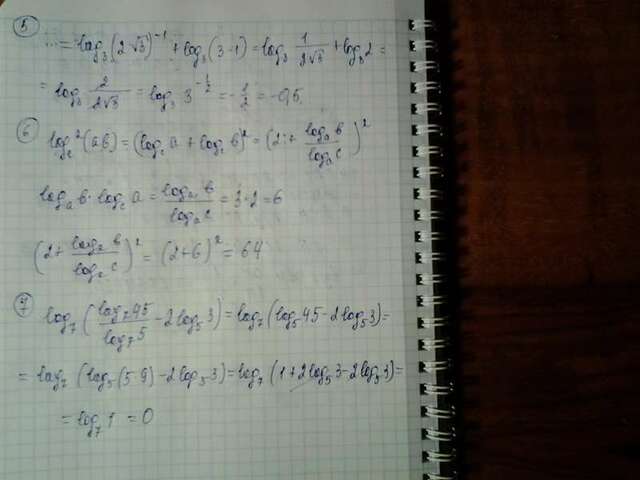 5
... = log₃(2√3)⁻¹ + log₃(3-1) = log₃ 1/(2√3) + log₃2 =
= log₃ 2/(2√3) = log₃ 3^(-1/2) = -1/2 = -0,5.
6
log_c²(ab) = (log_c a + log_c b)² = (2 + (log_a b)/(log_a c))²
log_a b · log_c a = (log_a b)/(log_a c) = 3·2 = 6
(2 + (log_a b)/(log_a c))² = (2+6)² = 64
7
log₇((log₇45)/(log₇5) - 2log₅3) = log₇(log₅45 - 2log₅3) =
= log₇(log₅(5·9) - 2log₅3) = log₇(1 + 2log₅3 - 2log₅3) =
= log₇1 = 0